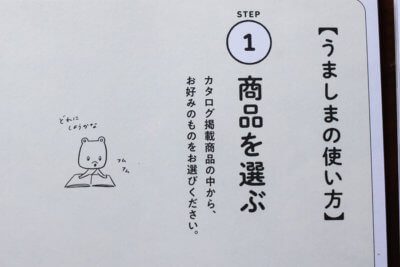 【うましまの使い方】
STEP
1
商品を選ぶ
カタログ掲載商品の中から、
お好みのものをお選びください。
どれに
しようかな
フム
フム